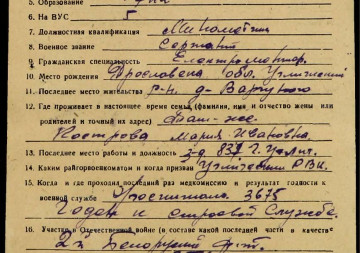 5. Образование
6. На ВУС 5
7. Должностная квалификация Минометчик
8. Военное звание Сержант
9. Гражданская специальность Електромонтер.
10. Место рождения Ярославская обл. Угличский
11. Последнее место жительства р-н. д-
12. Где проживает в настоящее время семья (фамилия, имя и отчество жены или
родителей и точный их адрес)
Кострова Мария Ивановна
13. Последнее место работы и должность з-д 837 г. Углич.
14. Каким райгорвоенкоматом и когда призван Угличским РВК.
15. Когда и где проходил последний раз медкомиссию и результат годности к
военной службе Госпиталь 3675
Годен к строевой службе.
16. Участие в Отечественной войне (в составе какой последней части в качестве
2й Белорусский фр.